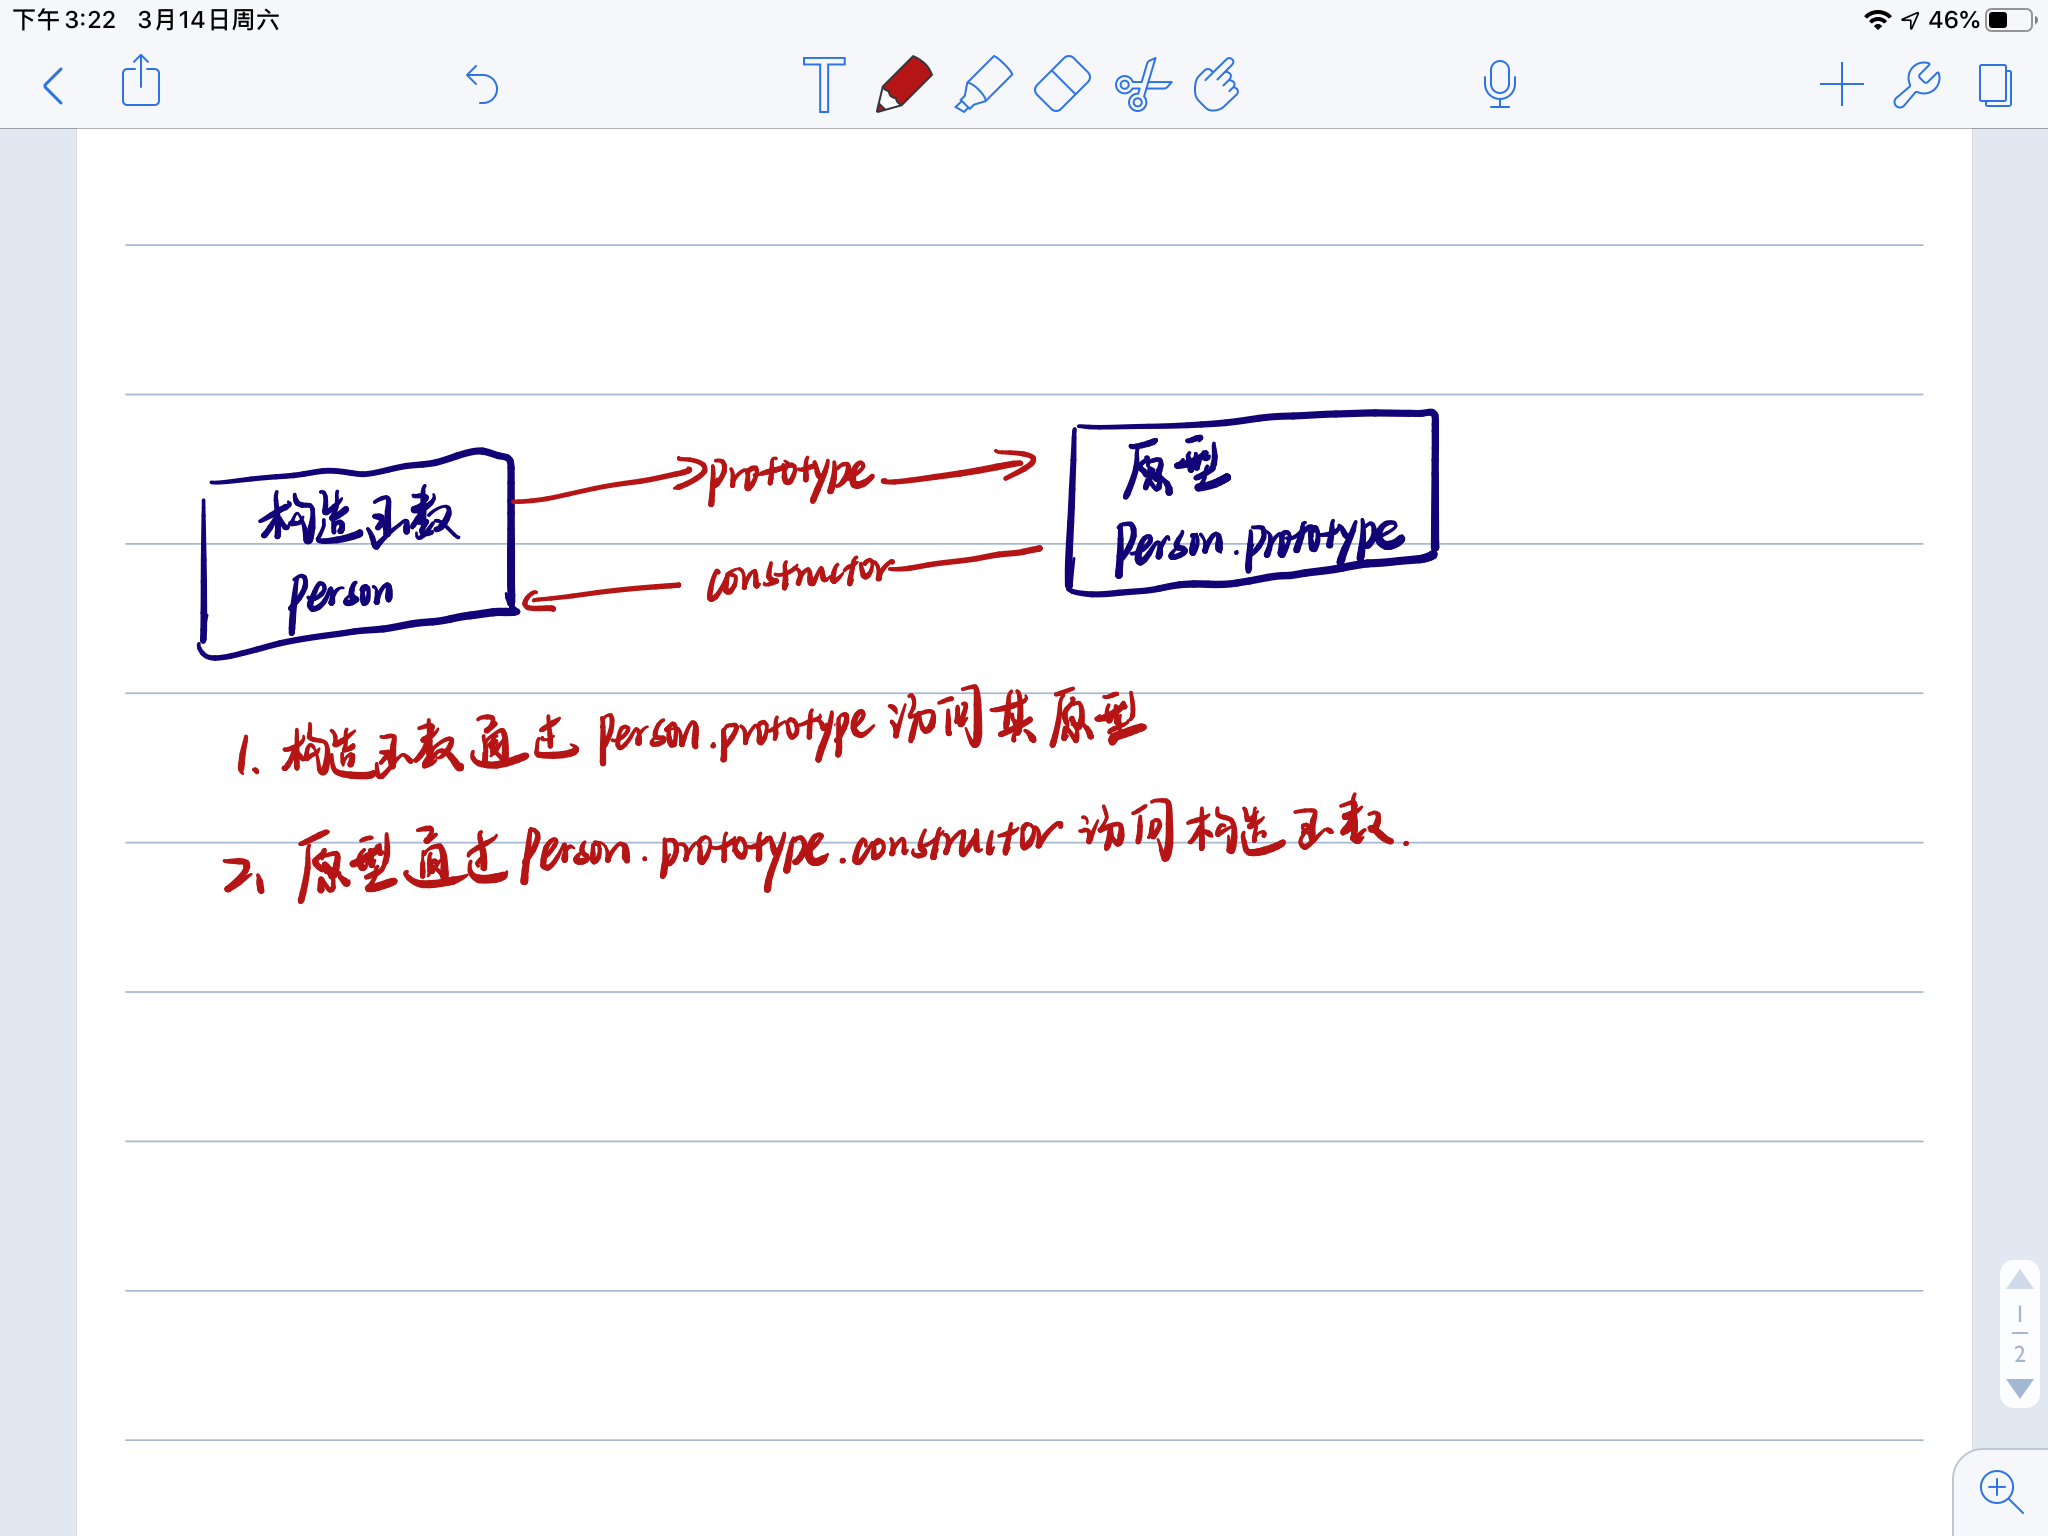 下午3:22 3月14日周六
46%
T
prototype
原型
构造函数
Person.prototype
constructor
Person
1. 构造函数通过 Person.prototype 访问其原型
2、原型通过 Person.prototype.constructor 访问构造函数.
1
2